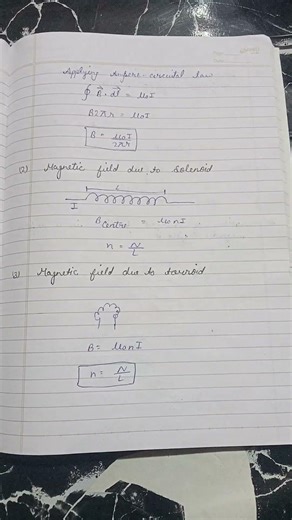 Applying Ampere circuital law
∮ B⃗ · dl⃗ = μ₀I
B2πr = μ₀I
B = μ₀I / 2πr
(2) Magnetic field due to solenoid
L
I
B centre = μ₀nI
n = N/L
(3) Magnetic field due to toroid
B = μ₀nI
n = N/L